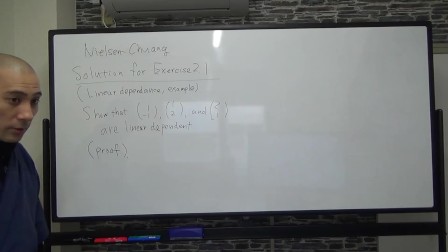 Nielsen Chuang
Solution for Exercise 2.1
(Linear dependence, example)
Show that (1 -1), (1 2), and (2 1)
are linear dependent
(proof)